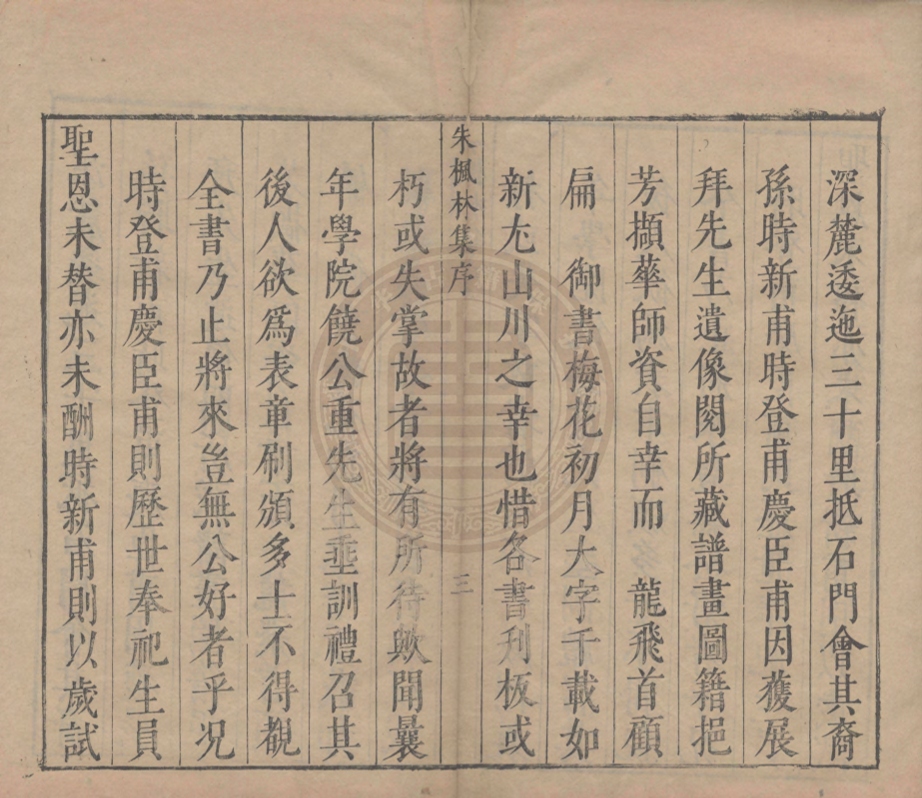 深麓逶迤三十里抵石門會其裔
孫時新甫時登甫慶臣甫因獲展
拜先生遺像閱所藏譜畫圖籍挹
芳擷華師資自幸而　龍飛首顧
扁　御書梅花初月大字千載如
新尤山川之幸也惜各書刋板或
朱楓林集序
三
朽或失掌故者將有所待歟聞曩
年學院饒公重先生埀訓禮召其
後人欲爲表章刷頒多士不得覩
全書乃止將來豈無公好者乎况
時登甫慶臣甫則歷世奉祀生員
聖恩未替亦未酬時新甫則以歲試